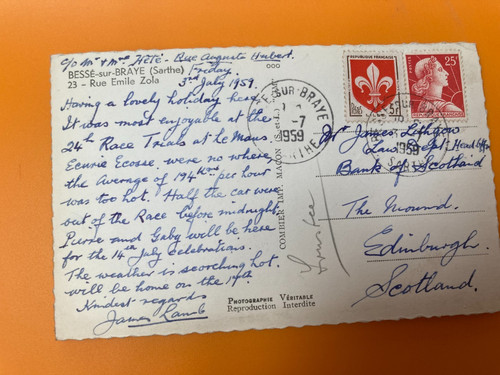 c/o Mr & Mme Hété - Rue Auguste Hubert.
BESSÉ-sur-BRAYE (Sarthe) Friday.
23 - Rue Emile Zola 3rd July 1959.
Having a lovely holiday here.
It was most enjoyable at the
24h Race Trials at Le Mans.
Ecurie Ecosse, were no where
the Average of 194 Kms per hour
was too hot. Half the cars were
out of the Race before midnight.
and Gaby will be here
for the 14th July celebrations.
The weather is scorching hot.
will be home on the
Kindest regards
James Lamb
COMBIER IMP. MACON (S.-et-L.)
PHOTOGRAPHIE VÉRITABLE
Reproduction Interdite
REPUBLIQUE FRANÇAISE
25F
SUR-BRAYE
-7
1959
SARTHE
1959
Mr James Lethgow
Law Dept. Head Office
Bank of Scotland
The Mound.
Edinburgh.
Scotland.